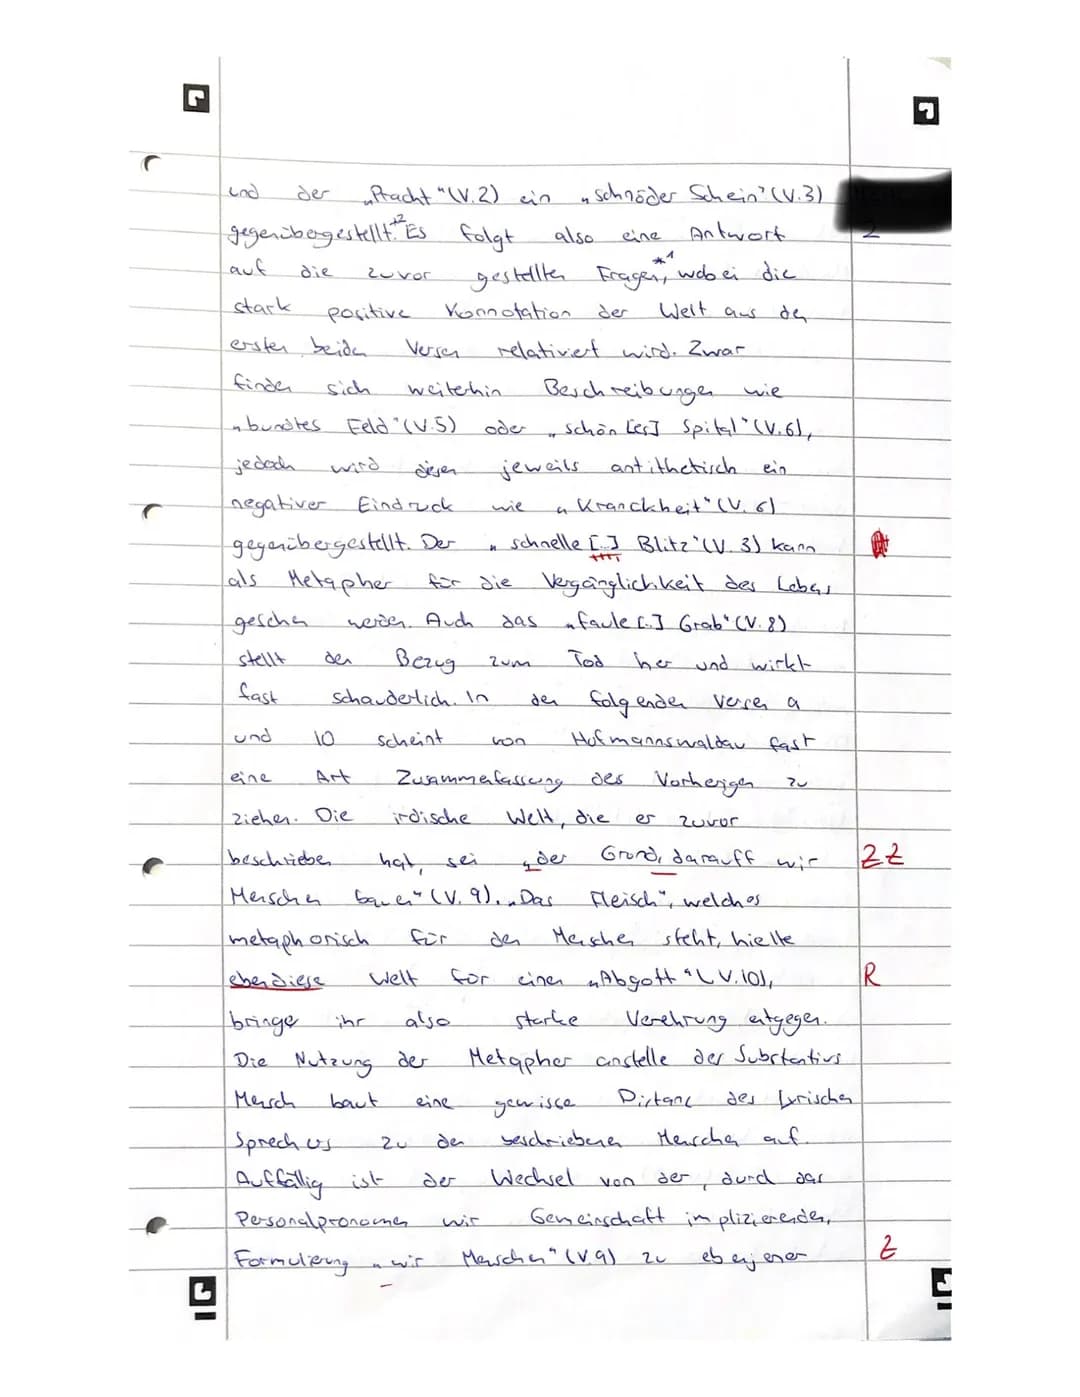 und der „Pracht“ (V.2) ein „schnöder Schein“ (V.3)
2
gegenübergestellt.*2 Es folgt also eine Antwort
auf die zuvor gestellten Fragen,*1 wobei die
stark positive Konnotation der Welt aus den
ersten beiden Versen relativiert wird. Zwar
finden sich weiterhin Beschreibungen wie
„bundtes Feld“ (V.5) oder „schön[es] Spital“ (V.6),
jedoch wird diesen jeweils antithetisch ein
negativer Eindruck wie „Kranckheit“ (V. 6)
gegenübergestellt. Der „schnelle [..] Blitz“ (V. 3) kann
als Metapher für die Vergänglichkeit des Lebens
gesehen werden. Auch das „faule [..] Grab“ (V. 8)
stellt den Bezug zum Tod her und wirkt
fast schauderlich. In den folgenden Versen 9
und 10 scheint von Hofmannswaldau fast
eine Art Zusammenfassung des Vorherigen zu
ziehen. Die irdische Welt, die er zuvor
beschrieben hat, sei „der Grund, darauff wir ZZ
Menschen bauen“ (V. 9). „Das Fleisch“, welches
metaphorisch für den Menschen steht, hielte
eben diese Welt für einen „Abgott“ (V.10), R
bringe ihr also starke Verehrung entgegen.
Die Nutzung der Metapher anstelle des Substantivs
Mensch baut eine gewisse Distanz des lyrischen
Sprechers zu den beschriebenen Menschen auf.
Auffällig ist der Wechsel von der, durch das
Personalpronomen wir Gemeinschaft implizierenden,
Formulierung „wir Menschen“ (V.9) zu ebenjener Z